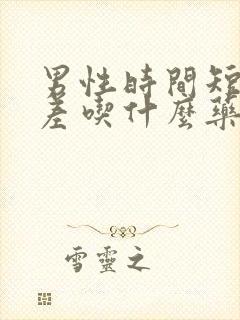 男性時間短
差喫什麼藥
雪靈之